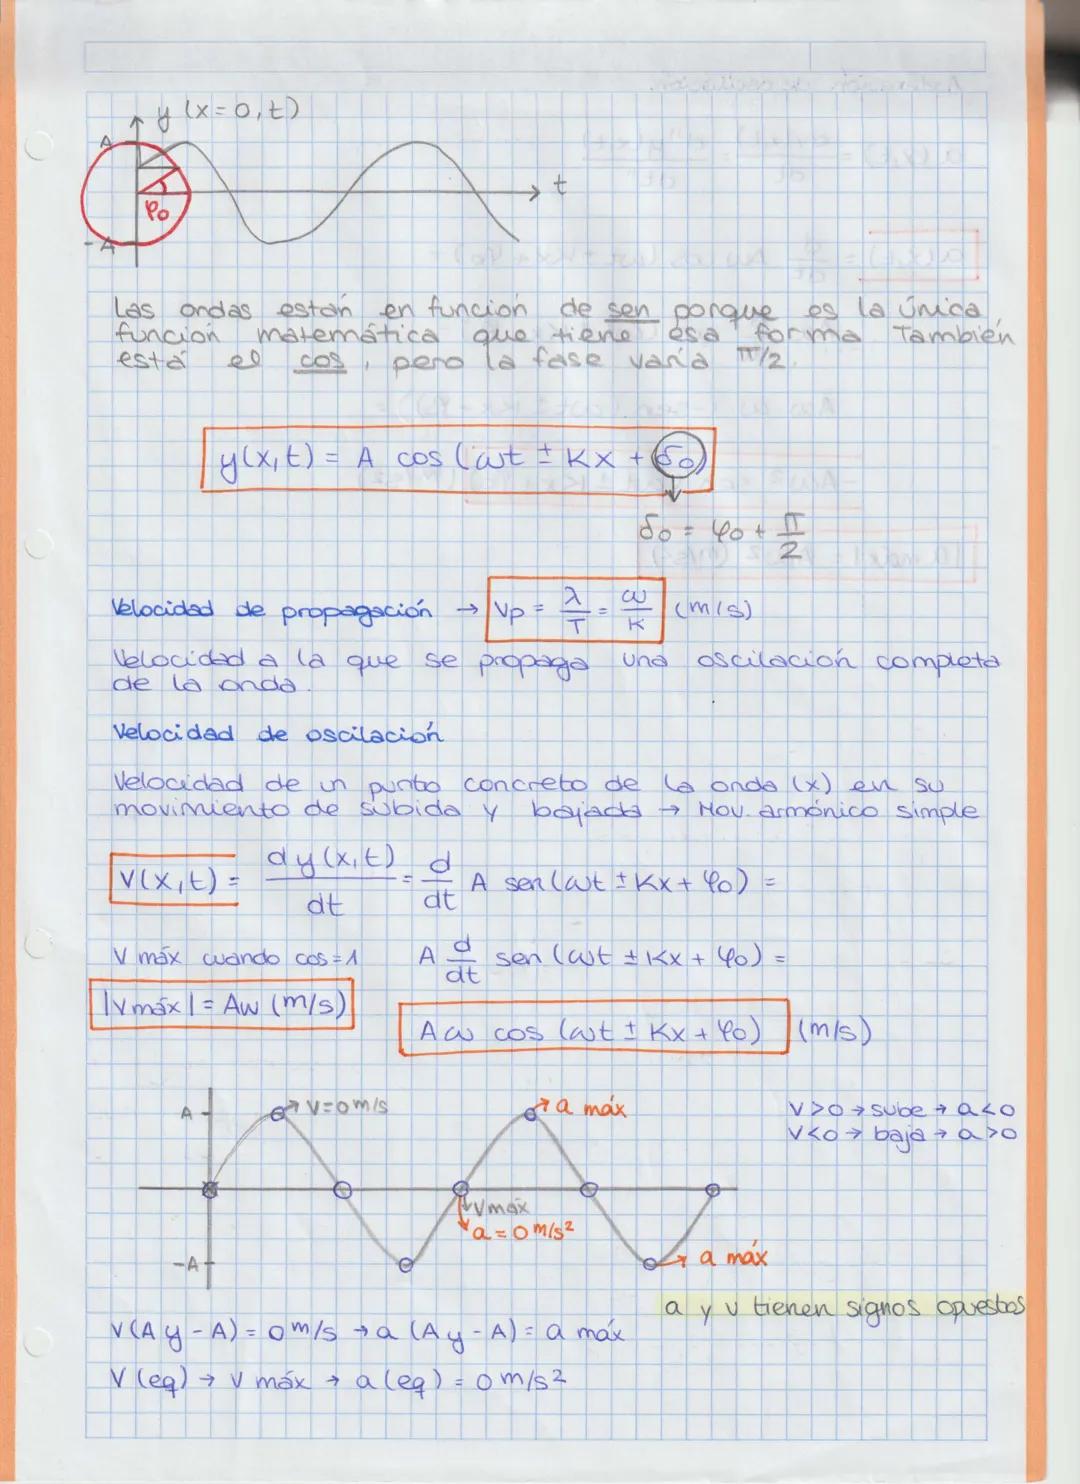 y (x=0,t)
A
t
φ₀
-A
Las ondas están en función de sen porque es la única
función matemática que tiene esa forma. También
está el cos, pero la fase varía π/2.
y(x,t) = A cos (ωt ± Kx + δ₀)
δ₀ = φ₀ + π/2
Velocidad de propagación → Vp = λ/T = ω/K (m/s)
Velocidad a la que se propaga una oscilación completa
de la onda.
Velocidad de oscilación
Velocidad de un punto concreto de la onda (x) en su
movimiento de subida y bajada → Mov. armónico simple
V(x,t) = dy(x,t)/dt = d/dt A sen(ωt ± Kx + φ₀) =
V máx cuando cos=1 A d/dt sen (ωt ± Kx + φ₀) =
|V máx| = Aω (m/s)
Aω cos (ωt ± Kx + φ₀) (m/s)
A
V=0 m/s
a máx
V>0 → sube → a<0
V<0 → baja → a>0
V máx
a = 0 m/s²
-A
a máx
a y v tienen signos opuestos
V(A y -A) = 0 m/s → a (A y -A) = a máx
V (eq) → V máx → a (eq) = 0 m/s²